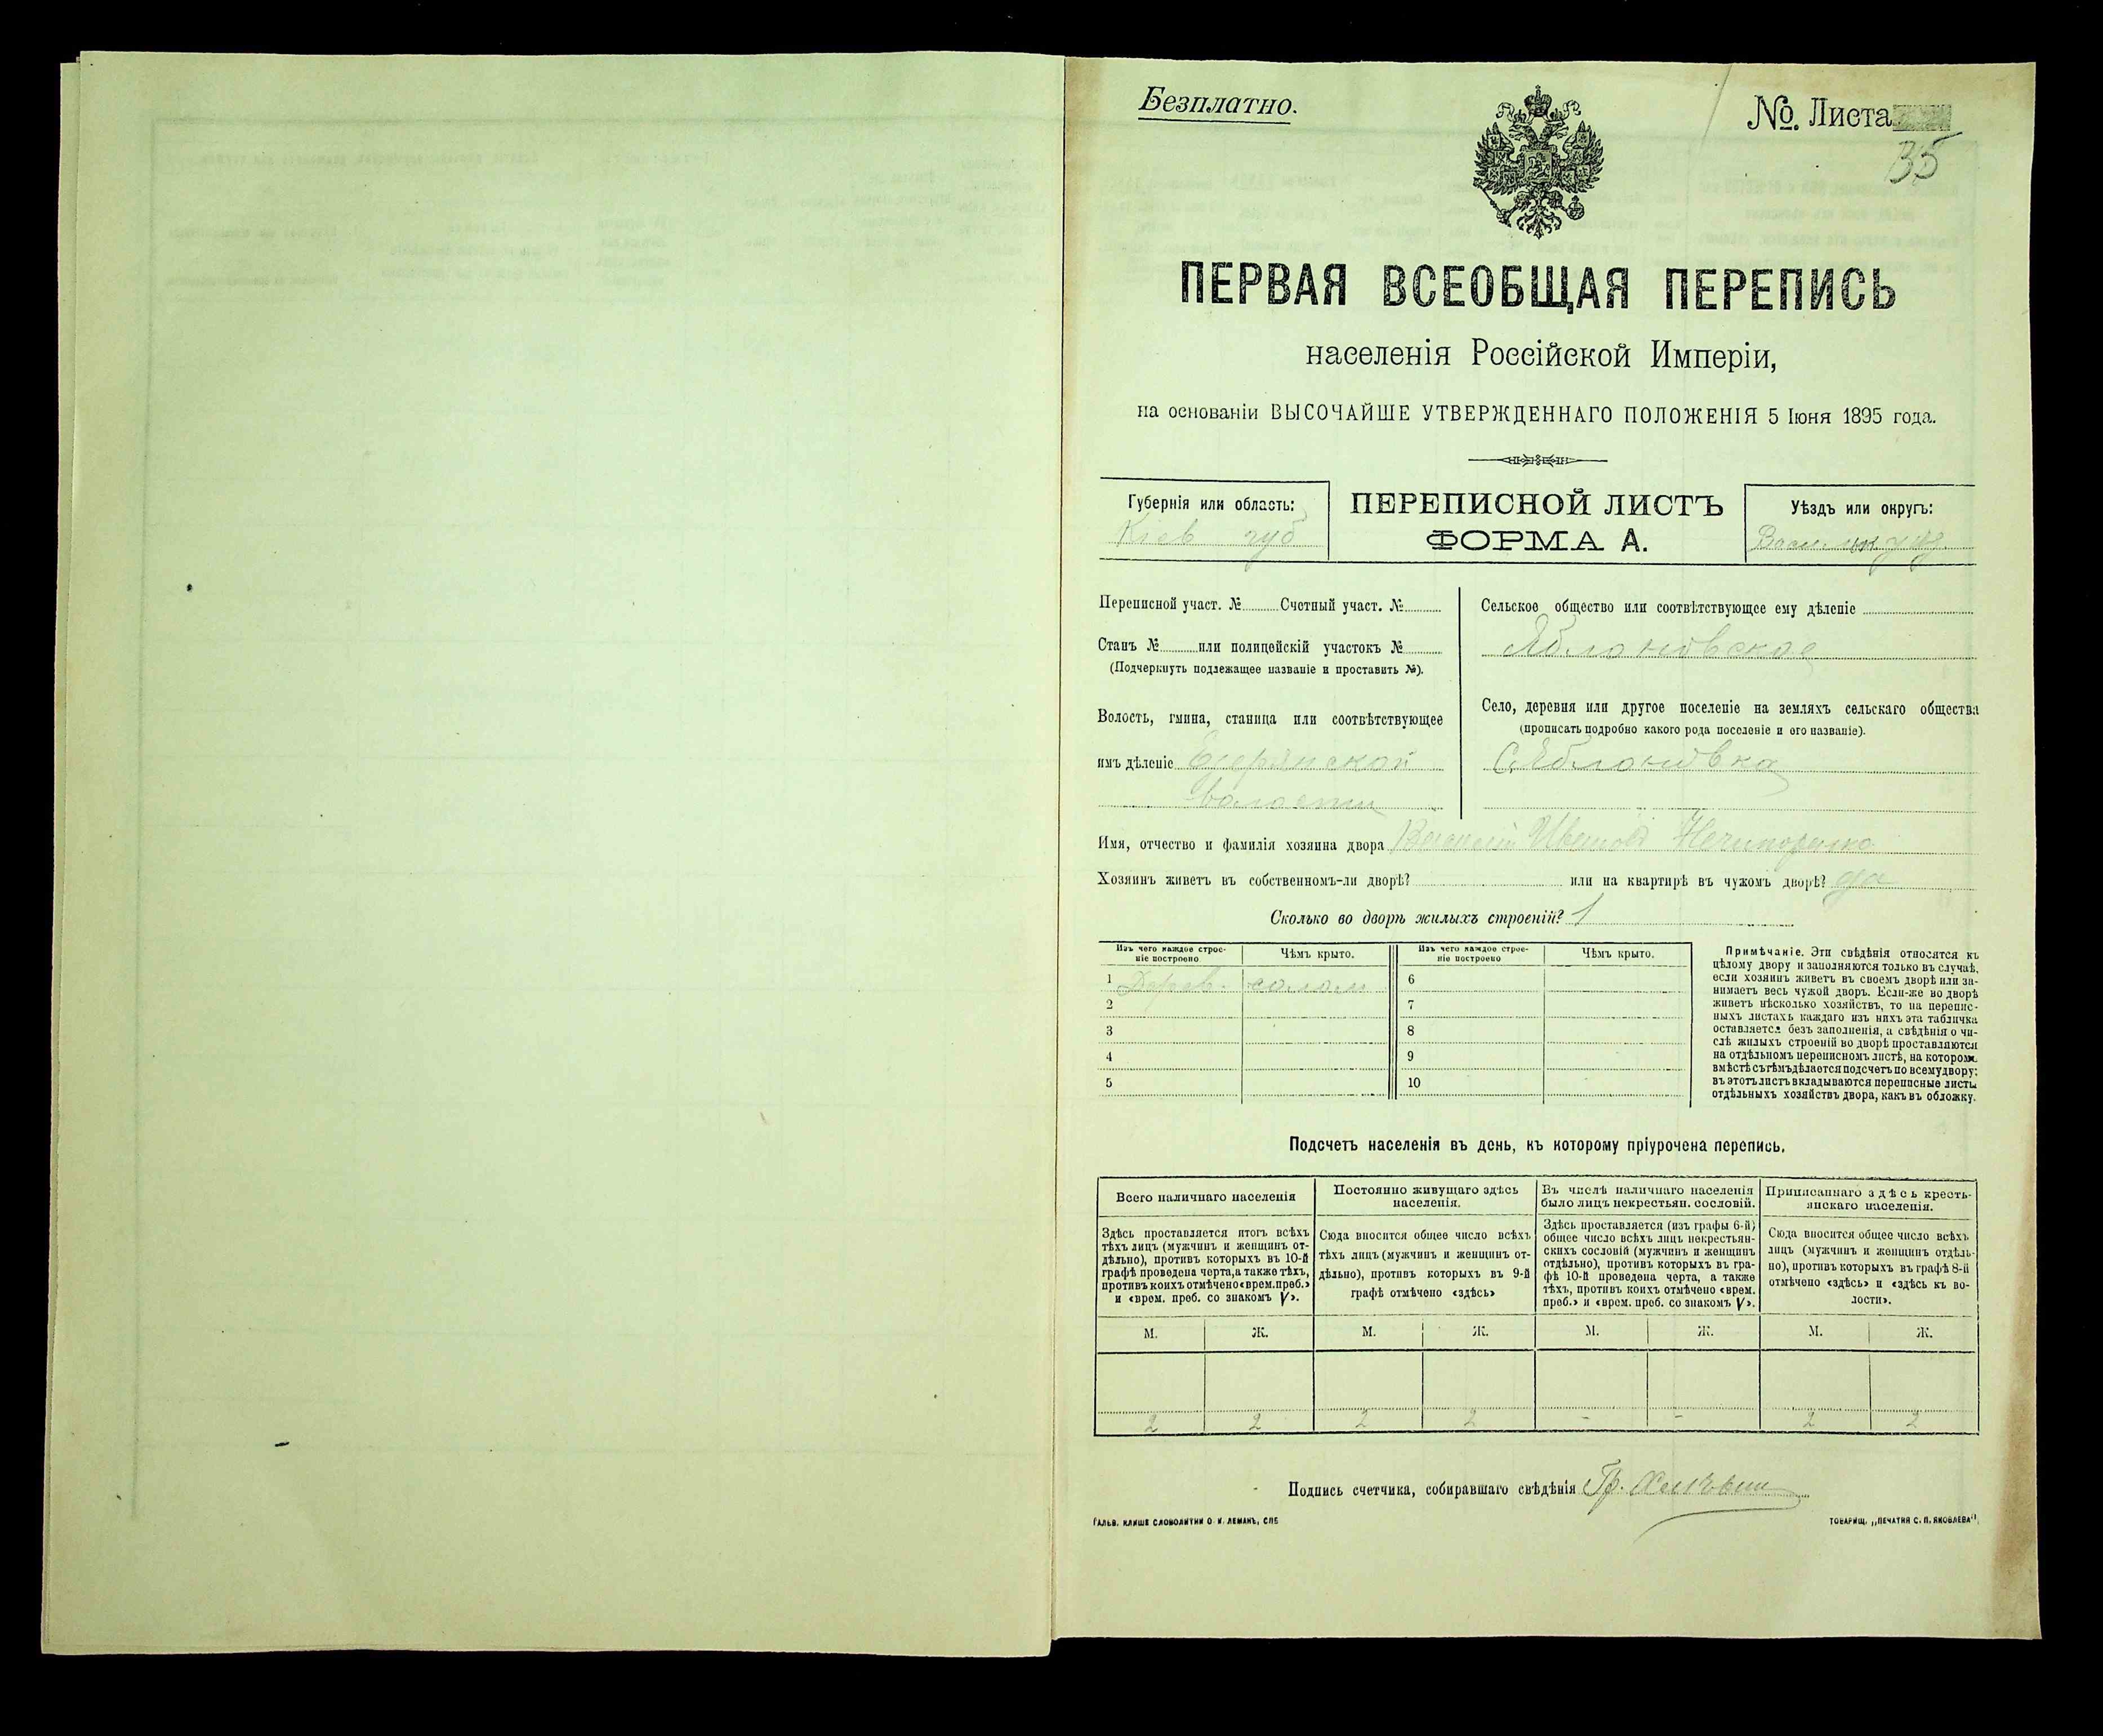 Безплатно.
№. Листа
35
ПЕРВАЯ ВСЕОБЩАЯ ПЕРЕПИСЬ
населенія Россійской Имперіи,
на основаніи ВЫСОЧАЙШЕ УТВЕРЖДЕННАГО ПОЛОЖЕНІЯ 5 Іюня 1895 года.
Губернія или область:
Кіев губ
ПЕРЕПИСНОЙ ЛИСТЪ
ФОРМА А.
Уѣздъ или округъ:
Переписной участ. № Счетный участ. №
Станъ № или полицейскій участокъ №
(Подчеркнуть подлежащее названіе и проставить №).
Волость, гмина, станица или соотвѣтствующее
имъ дѣленіе
волости
Сельское общество или соотвѣтствующее ему дѣленіе
Яблоновское
Село, деревня или другое поселеніе на земляхъ сельскаго общества
(прописать подробно какого рода поселеніе и его названіе).
С. Яблоновка
Имя, отчество и фамилія хозяина двора Василій Иванов Нечипоренко
Хозяинъ живетъ въ собственномъ-ли дворѣ? или на квартирѣ въ чужомъ дворѣ? да
Сколько во дворѣ жилыхъ строеній? 1
Изъ чего каждое строе-
ніе построено
Чѣмъ крыто.
Изъ чего каждое строе-
ніе построено
Чѣмъ крыто.
1 Дерев. солом 6
2 7
3 8
4 9
5 10
Примѣчаніе. Эти свѣдѣнія относятся къ
цѣлому двору и заполняются только въ случаѣ,
если хозяинъ живетъ въ своемъ дворѣ или за-
нимаетъ весь чужой дворъ. Если-же во дворѣ
живетъ нѣсколько хозяйствъ, то на перепис-
ныхъ листахъ каждаго изъ нихъ эта табличка
оставляется безъ заполненія, а свѣдѣнія о чи-
слѣ жилыхъ строеній во дворѣ проставляются
на отдѣльномъ переписномъ листѣ, на которомъ
вмѣстѣ съ тѣмъ дѣлается подсчетъ по всему двору;
въ этотъ листъ вкладываются переписные листы
отдѣльныхъ хозяйствъ двора, какъ въ обложку.
Подсчетъ населенія въ день, къ которому пріурочена перепись.
Всего наличнаго населенія
Здѣсь проставляется итогъ всѣхъ
тѣхъ лицъ (мужчинъ и женщинъ от-
дѣльно), противъ которыхъ въ 10-й
графѣ проведена черта, а также тѣхъ,
противъ коихъ отмѣчено «врем. преб.»
и «врем. преб. со знакомъ V».
Постоянно живущаго здѣсь
населенія.
Сюда вносится общее число всѣхъ
тѣхъ лицъ (мужчинъ и женщинъ от-
дѣльно), противъ которыхъ въ 9-й
графѣ отмѣчено «здѣсь»
Въ числѣ наличнаго населенія
было лицъ некрестьян. сословій.
Здѣсь проставляется (изъ графы 6-й)
общее число всѣхъ лицъ некрестьян-
скихъ сословій (мужчинъ и женщинъ
отдѣльно), противъ которыхъ въ гра-
фѣ 10-й проведена черта, а также
тѣхъ, противъ коихъ отмѣчено «врем.
преб.» и «врем. преб. со знакомъ V».
Приписаннаго здѣсь кресть-
янскаго населенія.
Сюда вносится общее число всѣхъ
лицъ (мужчинъ и женщинъ отдѣль-
но), противъ которыхъ въ графѣ 8-й
отмѣчено «здѣсь» и «здѣсь къ во-
лости».
М. Ж. М. Ж. М. Ж. М. Ж.
2 2 2 2 - - 2 2
Подпись счетчика, собиравшаго свѣдѣнія Гр.
ГАЛЬВ. КЛИШЕ СЛОВОЛИТНИ О. И. ЛЕМАНЪ, СПБ
ТОВАРИЩ. „ПЕЧАТНЯ С. П. ЯКОВЛЕВА".